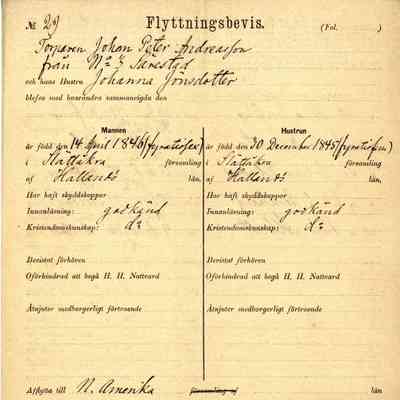 № 29 Flyttningsbevis. (Fol. )
Torparen Johan Peter Andreasson
från No 4 Sarestad
och hans Hustru Johanna Jönsdotter
blefvo med hvarandra sammanvigda den
Mannen Hustrun
är född den 14 April 1846 (fyratiosex) är född den 30 December 1845 (fyratiofem)
i Slättåkra församling i Slättåkra församling
af Hallands län. af Hallands län.
Har haft skyddskoppor Har haft skyddskoppor
Innanläsning: godkänd Innanläsning: godkänd
Kristendomskunskap: do Kristendomskunskap: do
Bevistat förhören Bevistat förhören
Oförhindrad att begå H. H. Nattvard Oförhindrad att begå H. H. Nattvard
Åtnjuter medborgerligt förtroende Åtnjuter medborgerligt förtroende
Aflytta till N. Amerika församling af län